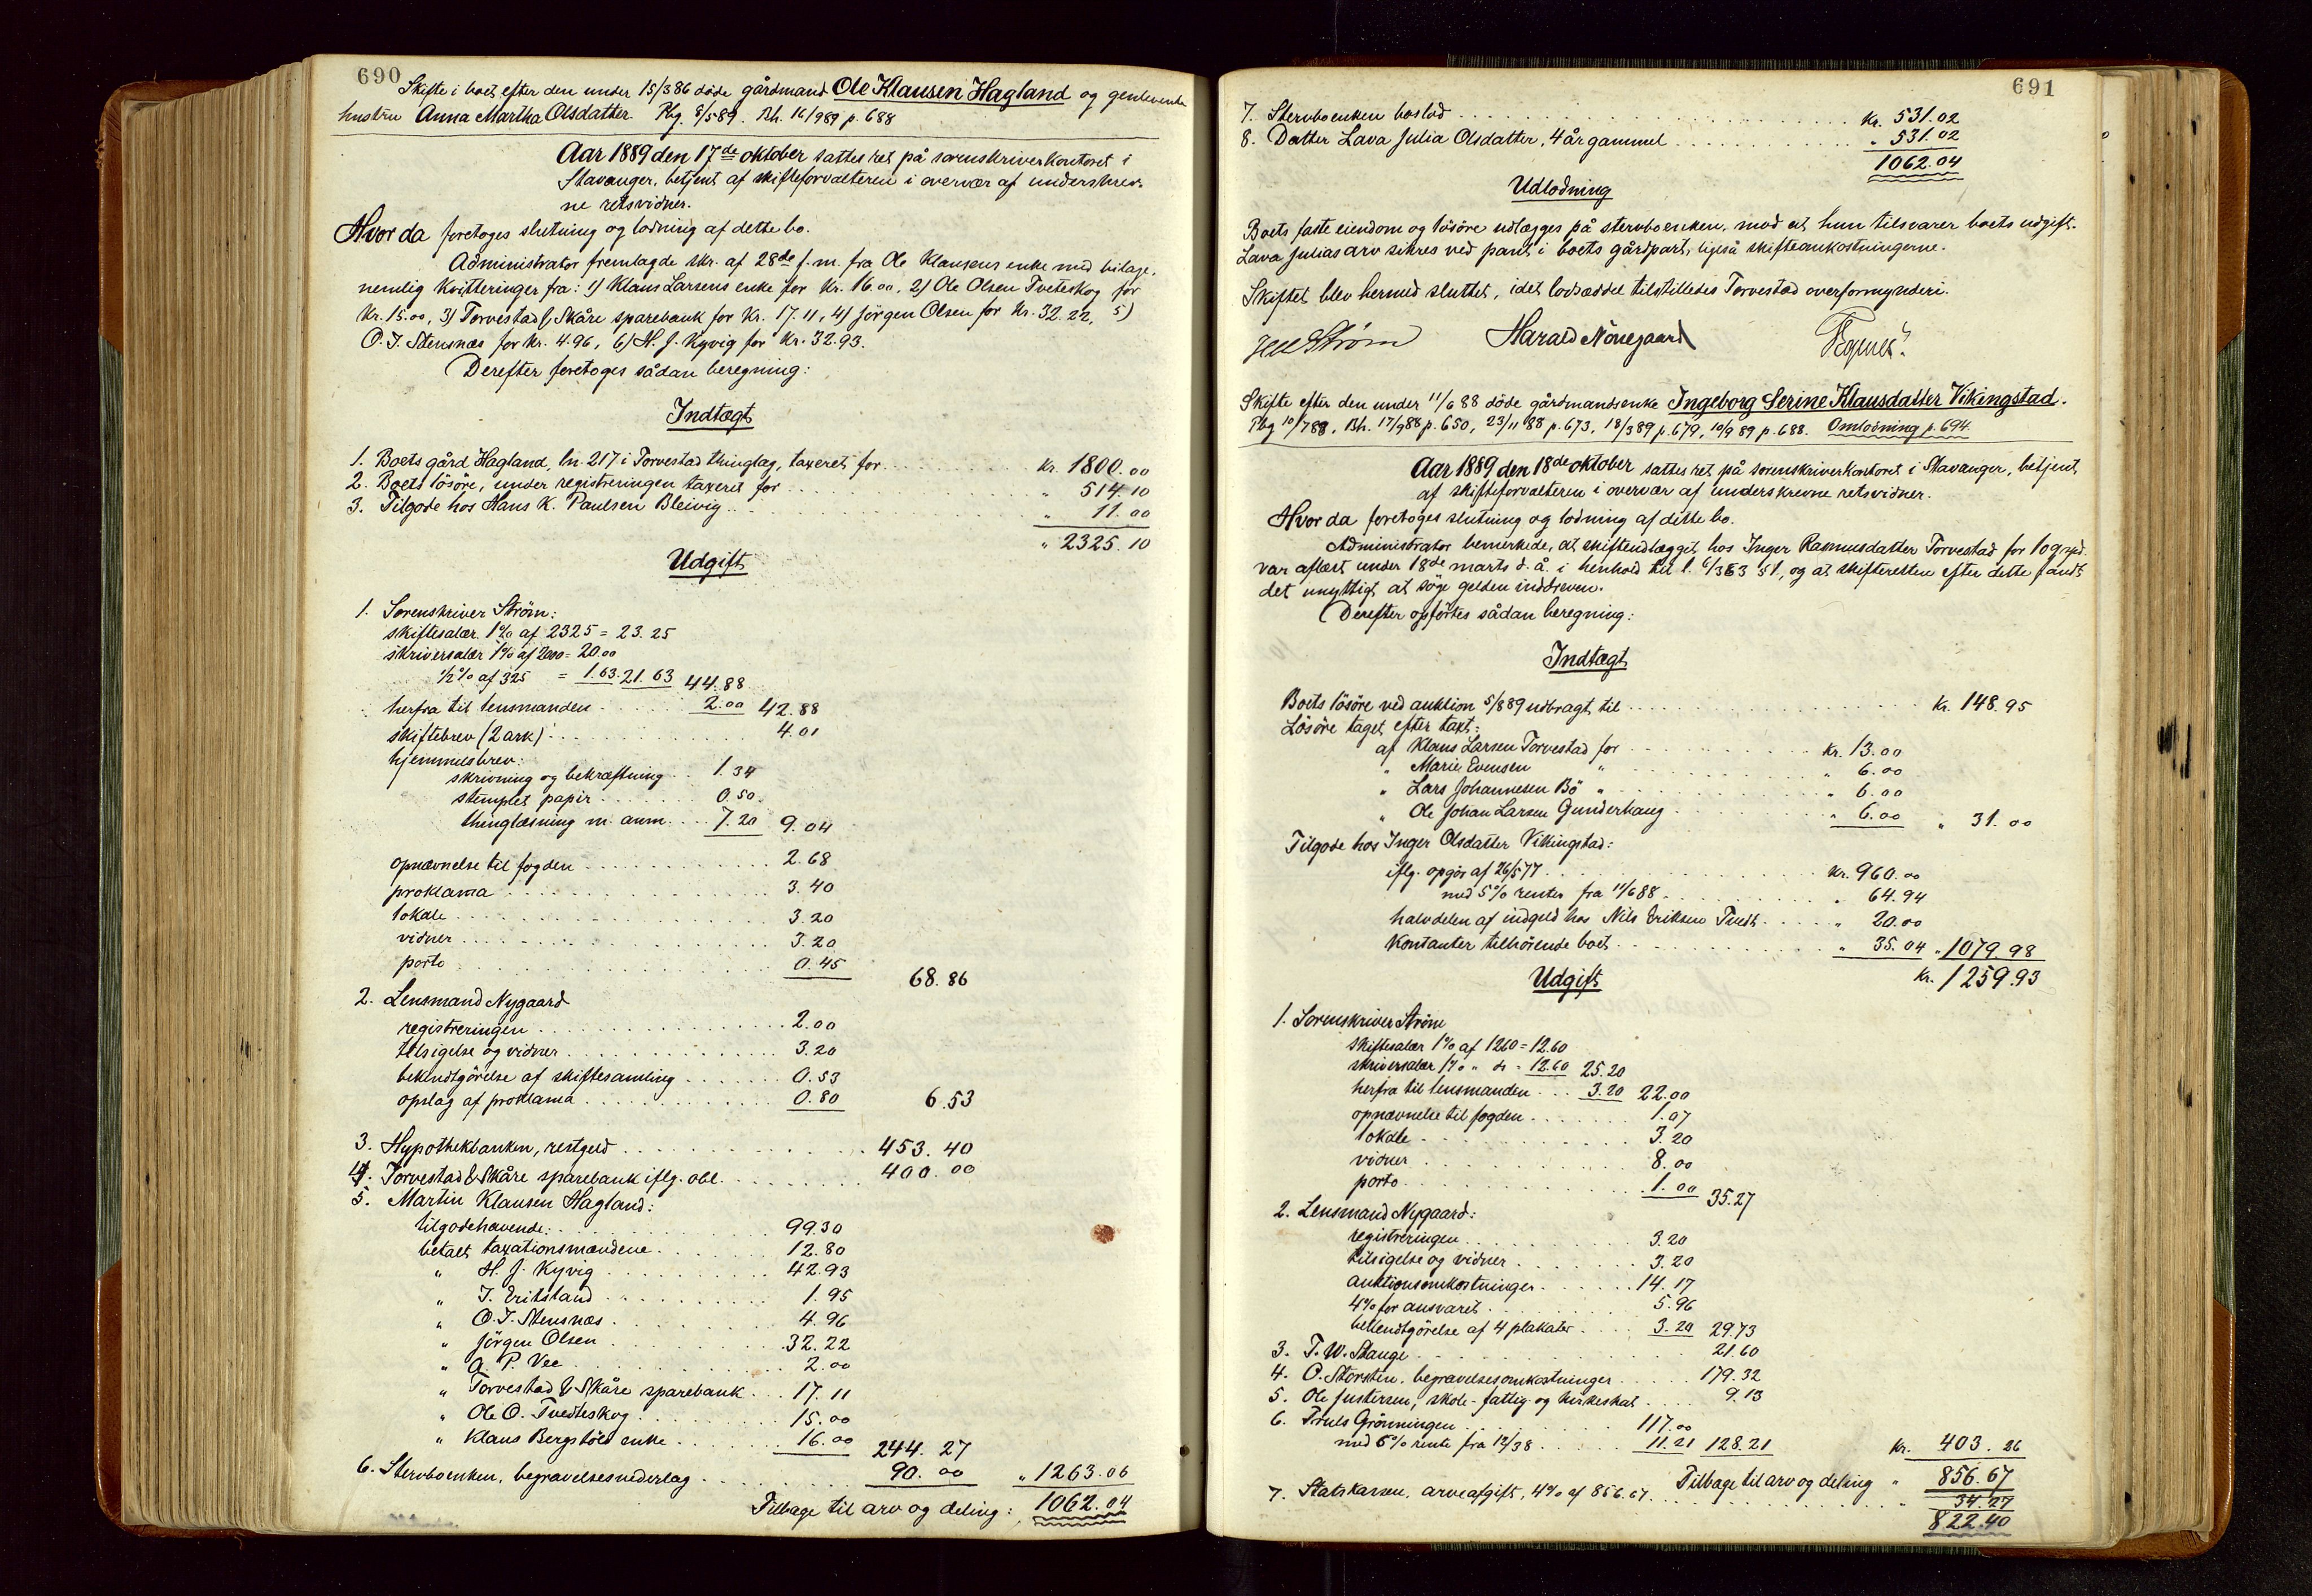 690
Skifte i boet efter den under 15/3 86 døde gårdmand Ole Klausen Hagland og gjenlevende
hustru Anna Martha Olsdatter. Pbg. 8/5 89. Bh. 16/9 89 p. 688
Aar 1889 den 17de oktober sattes ret på sorenskriverkontoret i
Stavanger, betjent af skifteforvalteren i overvær af underskrev-
ne retsvidner.
Hvor da foretoges slutning og lodning af dette bo.
Administrator fremlagde skr. af 28de f. m. fra Ole Klausens enke med bilage,
nemlig kvitteringer fra: 1) Klaus Larsens enke for kr. 16.00, 2) Ole Olsen Tveteskog for
kr. 15.00, 3) Torvestad & Skåre sparebank for kr. 17.11, 4) Jörgen Olsen for kr. 32.22, 5)
O. J. Stensnæs for kr. 4.96, 6) H. J. Kyvig for kr. 32.93.
Derefter foretoges sådan beregning:
Indtægt
1. Boets gård Hagland, ln. 217 i Torvestad thinglag, taxeret for kr. 1800.00
2. Boets lösöre, under registreringen taxeret for " 514.10
3. Tilgode hos Hans K. Paulsen Bleivig " 11.00
" 2325.10
Udgift
1. Sorenskriver Ström:
skiftesalær 1% af 2325 = 23.25
skriversalær 1% af 2000 = 20.00
1/2% af 325 = 1.63. 21.63 44.88
herfra til lensmanden 2.00 42.88
skiftebrev (2 ark) 4.01
hjemmelsbrev:
skrivning og bekræftning 1.34
stemplet papir 0.50
thinglæsning m. anm. 7.20 9.04
opnævnelse til fogden 2.68
proklama 3.40
lokale 3.20
vidner 3.20
porto 0.45
68.86
2. Lensmand Nygaard
registreringen 2.00
tilsigelse og vidner 3.20
bekjendtgörelse af skiftesamling 0.53
opslag af proklama 0.80 6.53
3. Hypothekbanken, restgeld 453.40
4. Torvestad & Skåre sparebank iflg. obl. 400.00
5. Martin Klausen Hagland:
tilgodehavende: 99.30
betalt taxationsmændene 12.80
" H. J. Kyvig 42.93
" J. Eritsland 1.95
" O. J. Stensnæs 4.96
" Jörgen Olsen 32.22
" A. P. Vee 2.00
" Torvestad & Skåre sparebank 17.11
" Ole O. Tvedteskog 15.00
" Klaus Bergstöls enke 16.00 244.27
6. Stervboenken, begravelsesnederlag 90.00 " 1263.06
Tilbage til arv og deling: 1062.04
691
7. Stervboenken boslod kr. 531.02
8. Datter Lava Julia Olsdatter, 4 år gammel " 531.02
1062.04
Udlodning
Boets faste eiendom og lösöre udlægges på stervboenken, mod at hun tilsvarer boets udgift.
Lava Julias arv sikres ved pant i boets gårdpart, ligeså skifteomkostningerne.
Skiftet blev hermed sluttet, idet lodseddel tilstilledes Torvestad overformynderi.
Ström Harald Nönegaard
Skifte efter den under 11/6 88 döde gårdmandsenke Ingeborg Serine Klausdatter Vikingstad.
Pbg 10/7 88. Bh. 17/9 88 p. 650, 23/11 88 p. 673, 18/3 89 p. 679, 10/9 89 p. 688. Omlodning p. 694.
Aar 1889 den 18de oktober sattes ret på sorenskriverkontoret i Stavanger, betjent
af skifteforvalteren i overvær af underskrevne retsvidner.
Hvor da foretoges slutning og lodning af dette bo.
Administrator bemerkede, at skifteudlægget hos Inger Rasmusdatter Torvestad for 10 spd.
var aflæst under 18de marts d. å. i henhold til l. 6/3 63 § 1, og at skifteretten efter dette fandt
det unyttigt at söge gelden inddreven.
Derefter opförtes sådan beregning:
Indtægt
Boets lösöre ved auktion 5/8 89 udbragt til kr. 148.95
Lösöre taget efter taxt:
af Klaus Larsen Torvestad for kr. 13.00
" Marie Evensen " " 6.00
" Lars Johannesen Bö " " 6.00
" Ole Johan Larsen Gunderhaug " 6.00 " 31.00
Tilgode hos Inger Olsdatter Vikingstad:
iflg. opgör af 26/5 77 kr. 960.00
med 5% renter fra 11/6 88 " 64.94
halvdelen af indgeld hos Nils Eriksen Tvedt " 20.00
Kontanter tilhörende boet " 35.04 " 1079.98
kr. 1259.93
Udgift
1. Sorenskriver Ström
skiftesalær 1% af 1260 = 12.60
skriversalær 1% " do = 12.60 25.20
herfra til lensmanden 3.20 22.00
opnævnelse til fogden 1.07
lokale 3.20
vidner 8.00
porto 1.00 35.27
2. Lensmand Nygaard:
registreringen 3.20
tilsigelse og vidner 3.20
auktionsomkostninger 14.17
4% for ansvaret 5.96
bekjendtgörelse af 4 plakater 3.20 29.73
3. T. W. Stange 21.60
4. O. Storsten, begravelsesomkostninger 179.32
5. Ole Justersen, skole- fattig- og kirkeskat 9.13
6. Truls Grönningen 117.00
med 6% rente fra 12/3 8 11.21 128.21 kr. 403.26
Tilbage til arv og deling " 856.67
7. Statskassen, arveafgift, 4% af 856.67 " 34.27
822.40